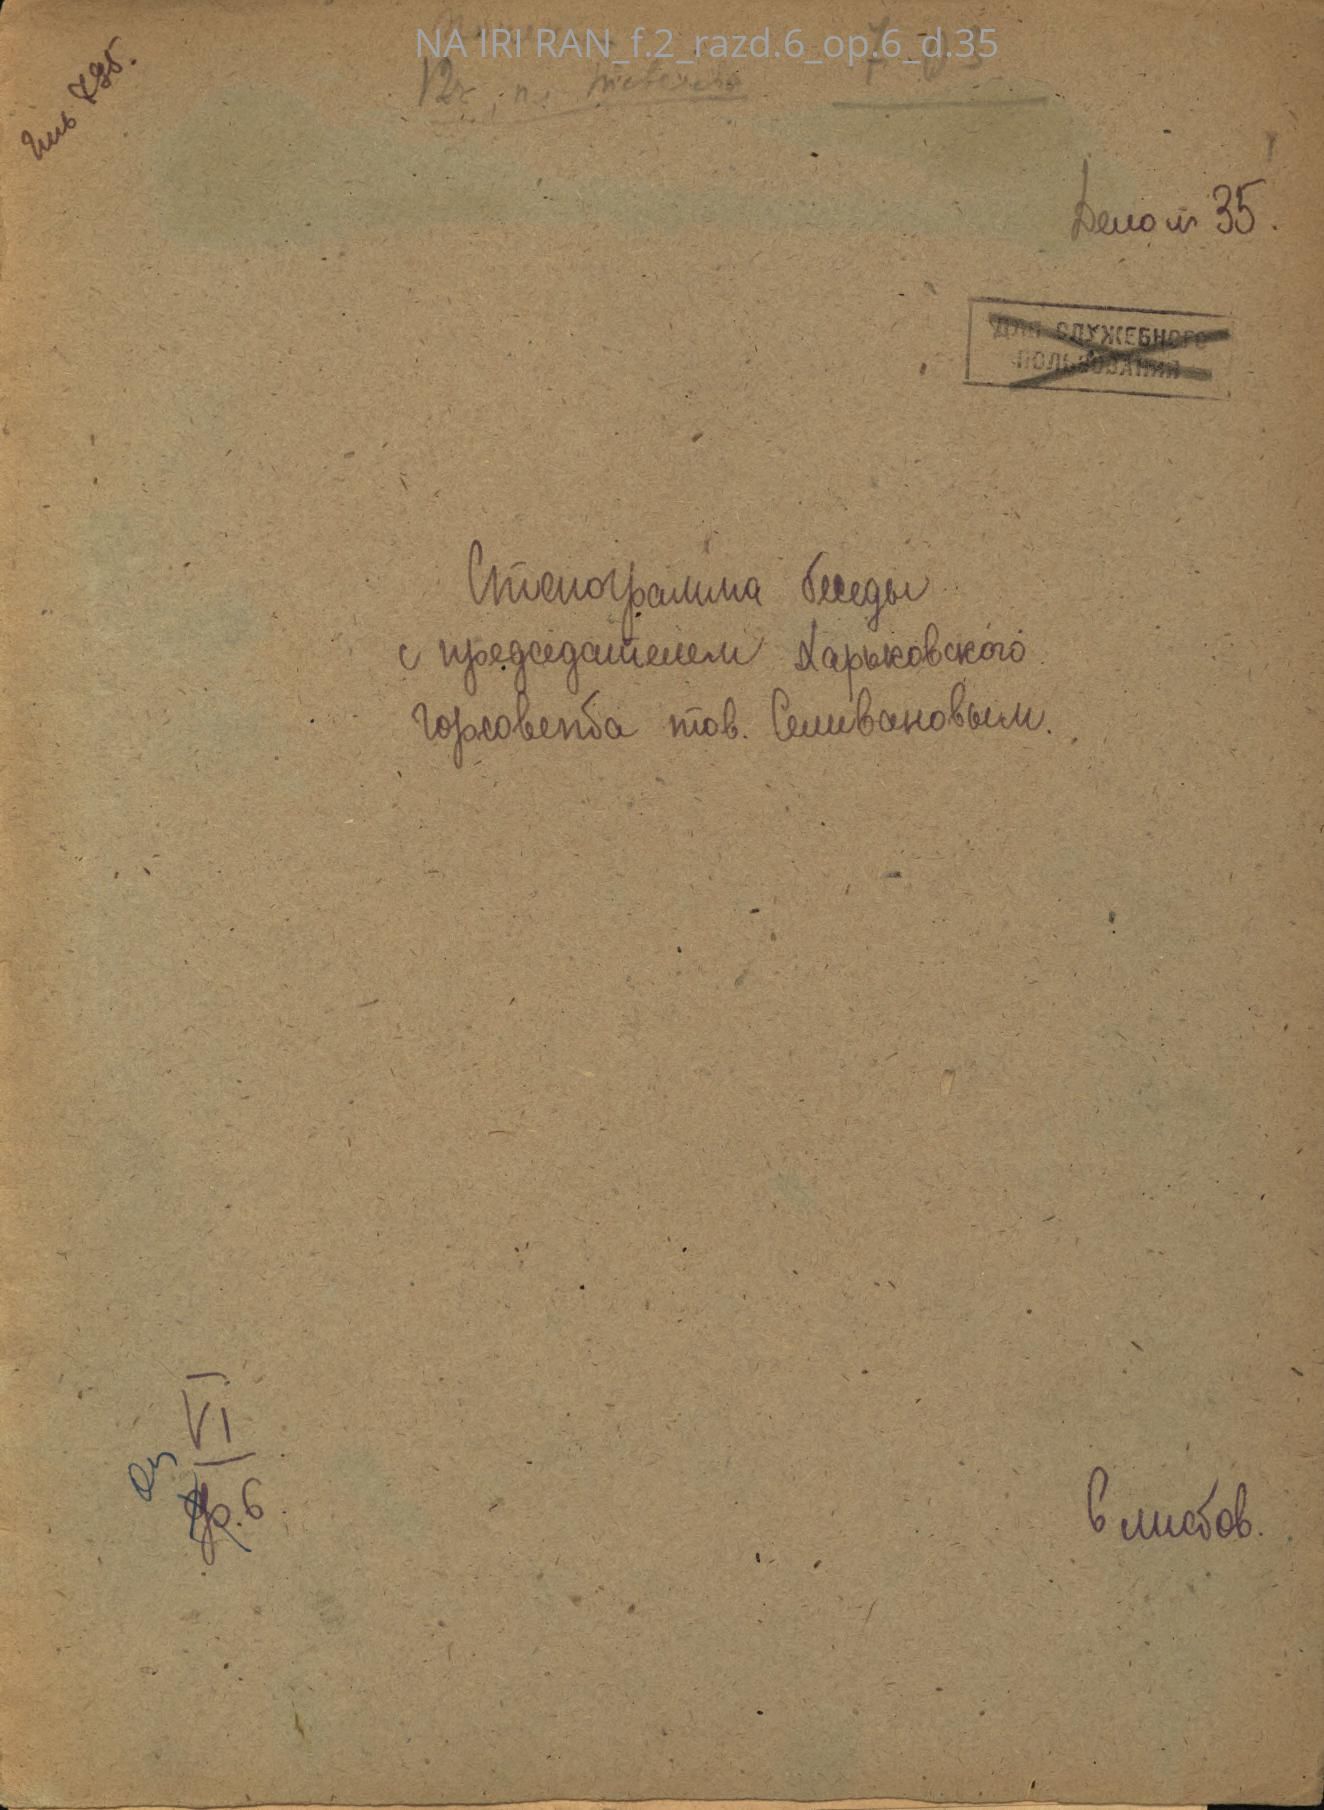 NA IRI RAN_f.2_razd.6_op.6_d.35
Дело № 35.
ДЛЯ СЛУЖЕБНОГО
ПОЛЬЗОВАНИЯ
Стенограмма беседы
с председателем Харьковского
горсовета тов. Селивановым.
VI
оп
6
6 листов.